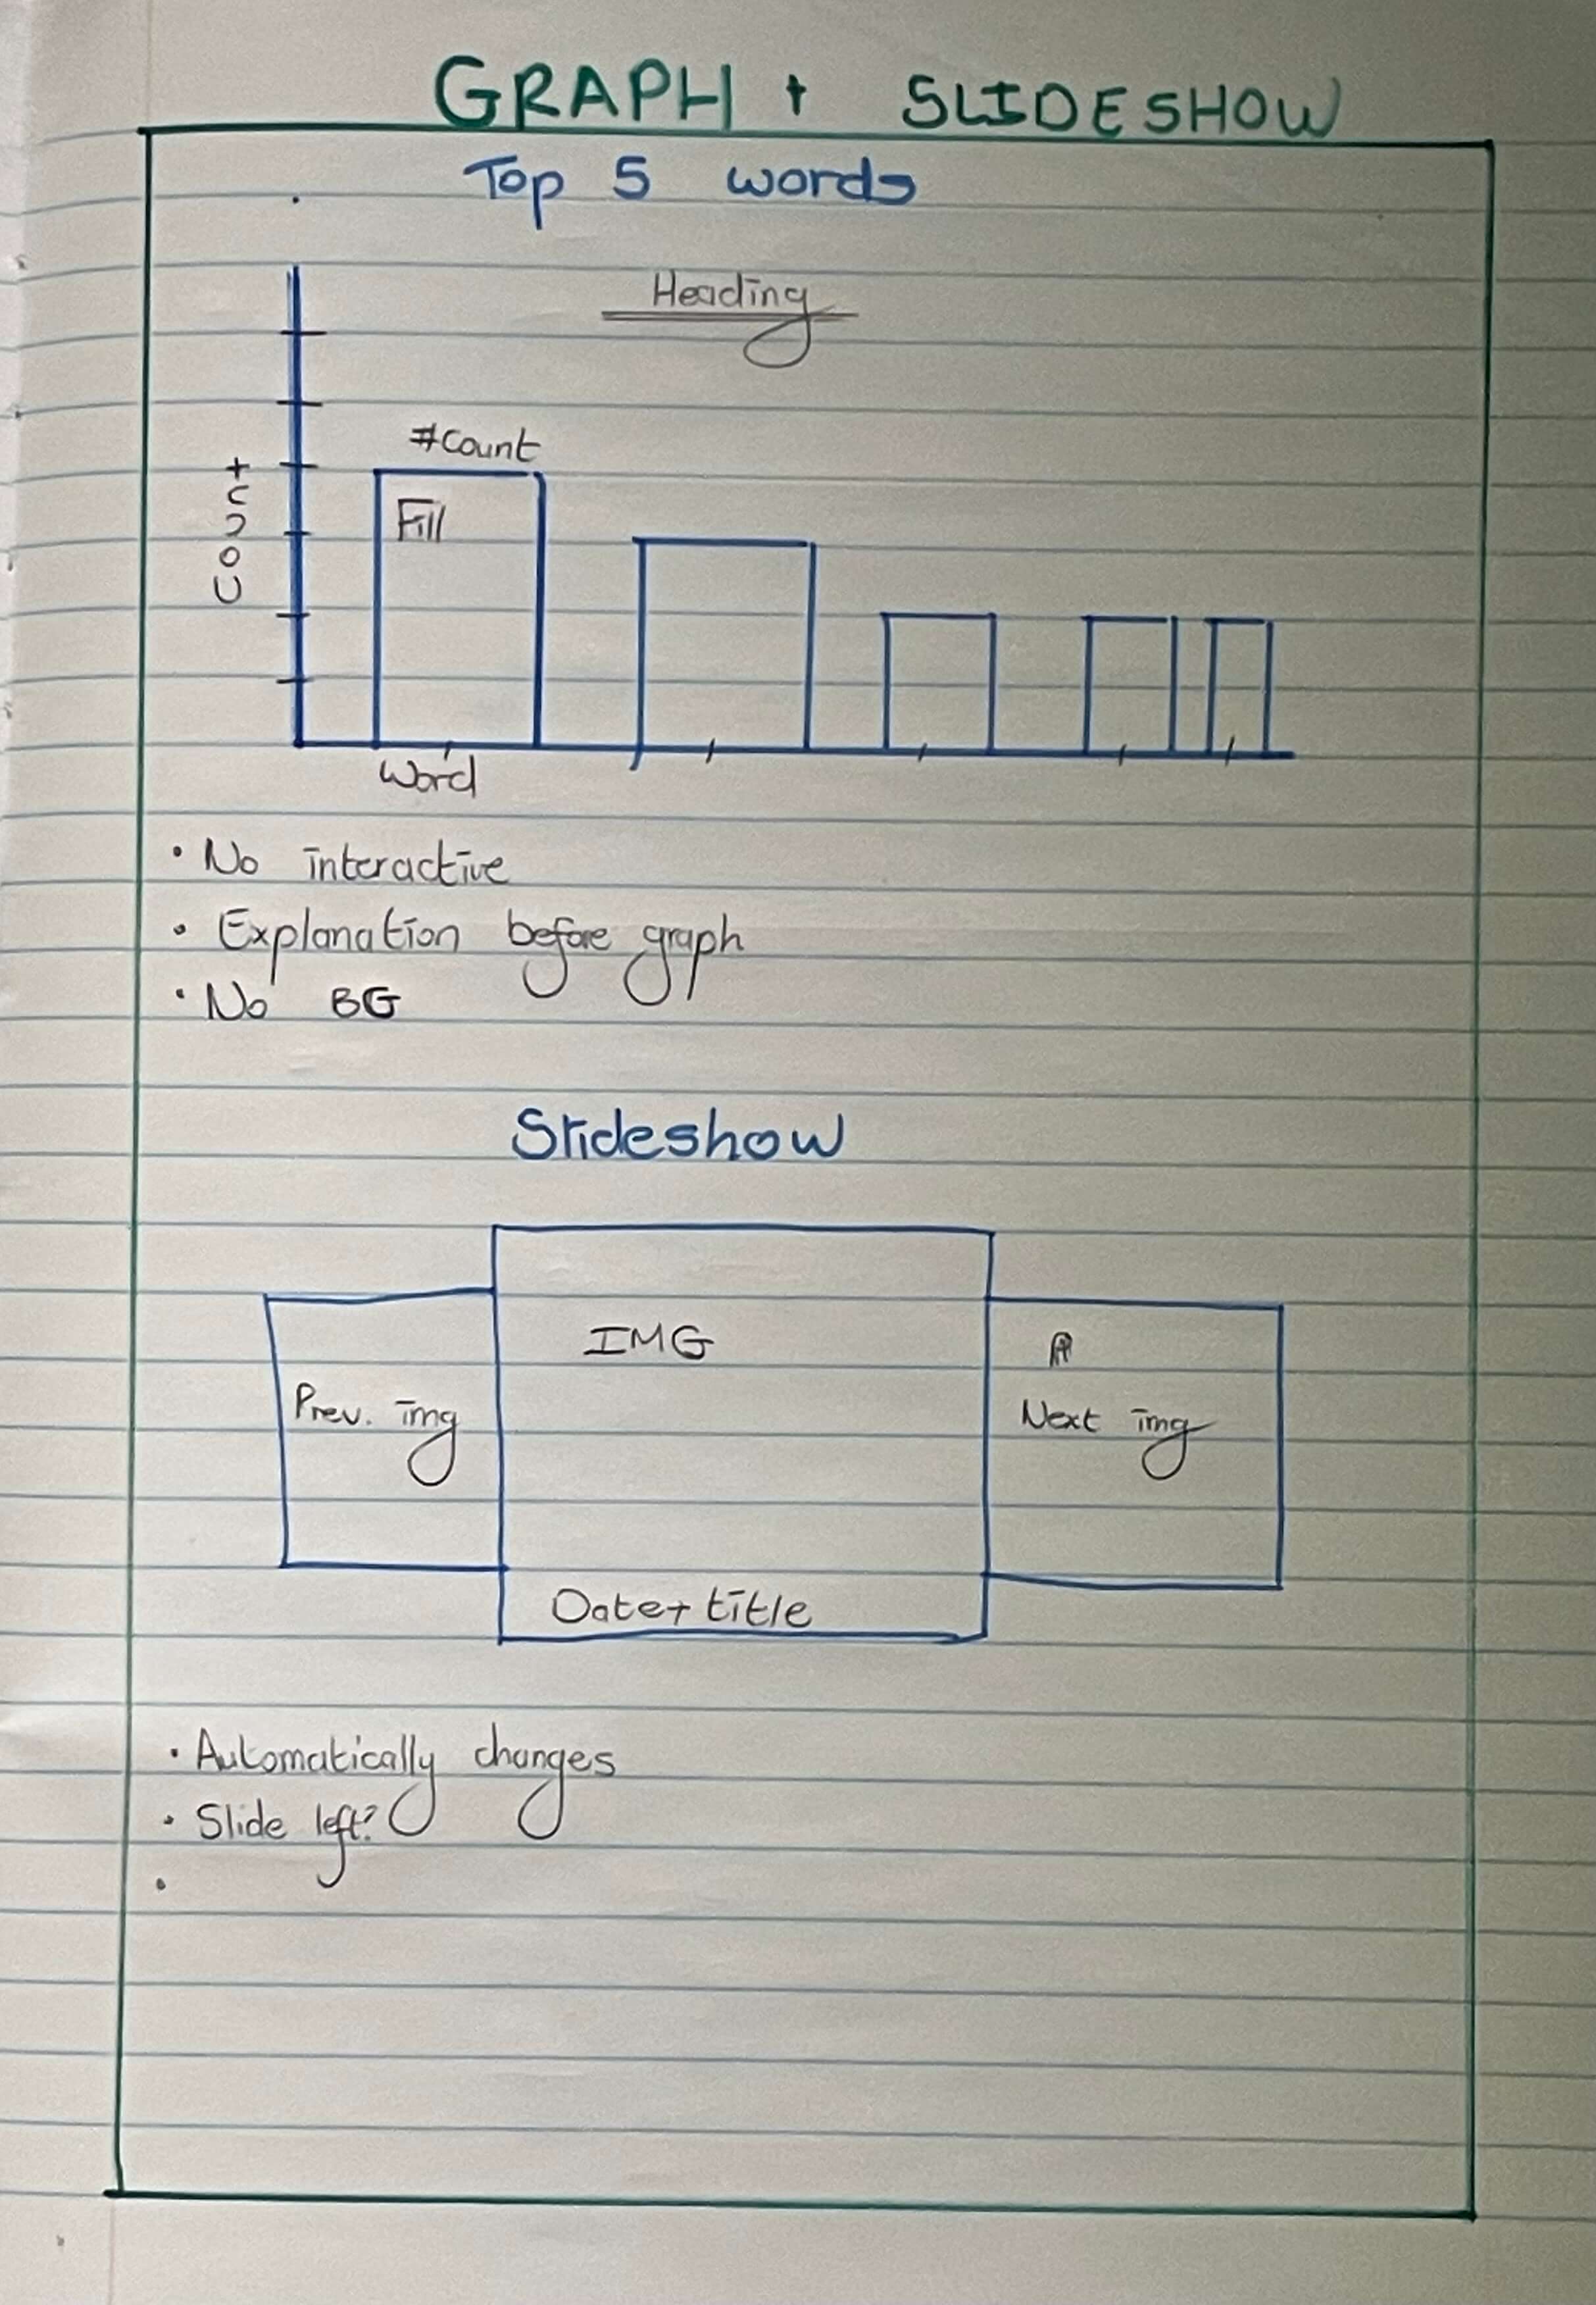 GRAPH + SLIDESHOW
Top 5 words
Heading
#Count
Fill
Count
Word
• No interactive
• Explanation before graph
• No BG
Slideshow
IMG
Prev. img
Next img
Date + title
• Automatically changes
• Slide left?
•